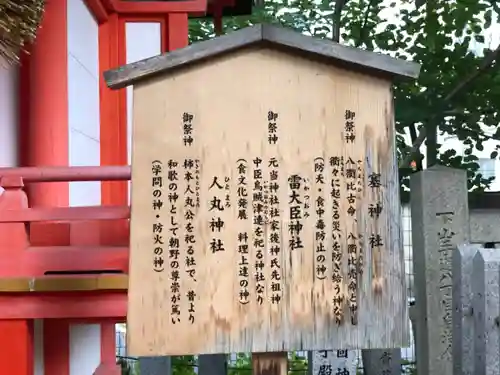 塞神社
御祭神
八衢比古命、八衢比売命と申し
衢々に起きる災いを防ぎ守る神なり
(防天・食中毒防止の神)
雷大臣神社
御祭神
元当神社社家後神氏先祖神
中臣烏賊津連を祀る神社なり
(食文化発展 料理上達の神)
ひとまろ
人丸神社
御祭神
柿本人丸公を祀る社で、昔より
和歌の神として朝野の尊崇が篤い
(学問の神・防火の神)